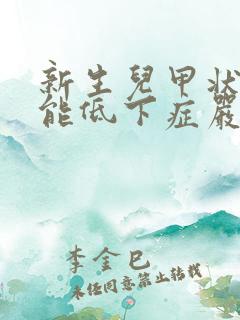 新生兒甲狀
能低下症嚴
李金巳
未经同意禁止转载